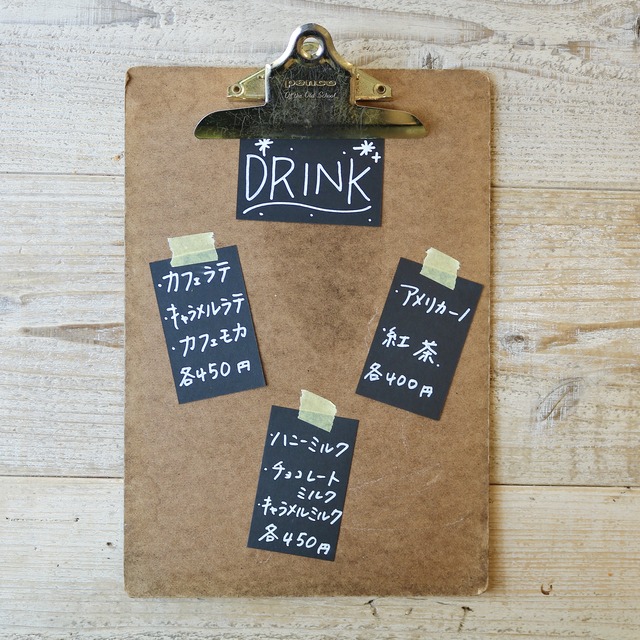 penco
Of the Old School
DRINK
・カフェラテ
・キャラメルラテ
・カフェモカ
各450円
・アメリカーノ
・紅茶.
各400円
・ハニーミルク
・チョコレート
ミルク
・キャラメルミルク
各450円